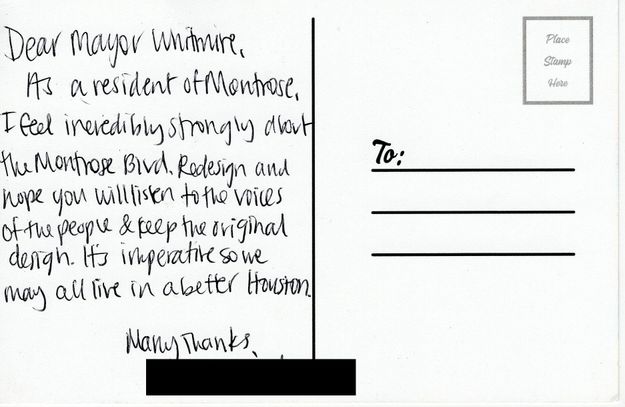 Dear Mayor Whitmire,
As a resident of Montrose,
I feel incredibly strongly about
the Montrose Blvd. Redesign and
hope you will listen to the voices
of the people & keep the original
design. It's imperative so we
may all live in a better Houston.
Many Thanks,
Place
Stamp
Here
To: